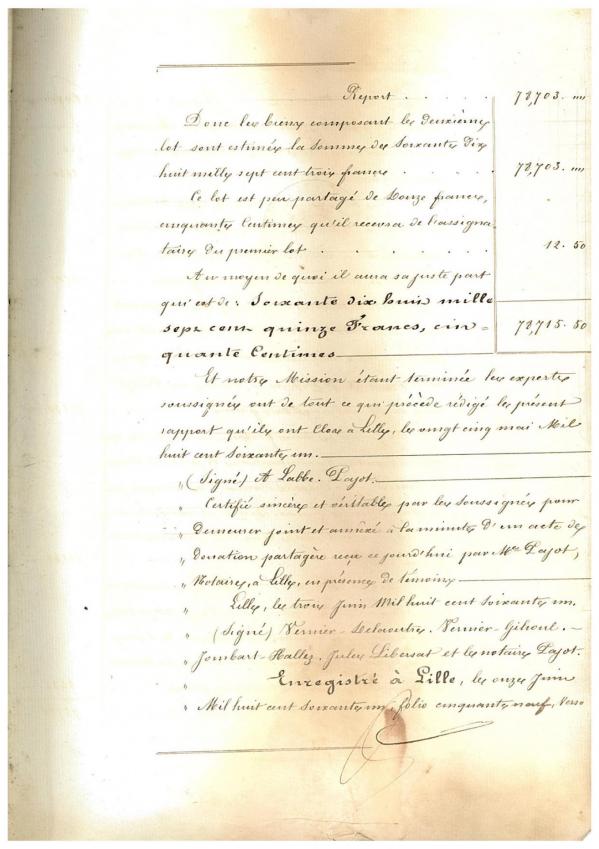 Report . . . . . 78,703. "" 
Donc les biens composant le deuxième
lot sont estimés la somme de Soixante dix
huit mille sept cent trois francs . . . . . 78,703. ""
Ce lot est peu partagé de Douze francs,
cinquante Centimes qu'il recevra de l'assigna-
taire du premier lot . . . . . . . 12. 50
Au moyen de quoi il aura sa juste part
qui est de : Soixante dix huit mille
sept cent quinze Francs, cin= 78,715. 50
quante Centimes
Et notre Mission étant terminée les experts
soussignés ont de tout ce qui précède rédigé le présent
rapport qu'ils ont Clos à Lille, le vingt cinq mai Mil
huit cent soixante un.
" (Signé) A Labbe. Pajot.
" Certifié sincère et véritable par les soussignés pour
" Demeurer joint et annexé à la minute d'un acte de
" Donation partagère reçu ce jourd'hui par Me Pajot,
" Notaire, à Lille, en présence de témoins
" Lille, le trois Juin Mil huit cent soixante un.
" (Signé) Vernier-Delaoutre. Vernier-Gihoul. —
" Jombart-Hallez. Jules Libersat et le notaire Pajot.
" Enregistré à Lille, le onze Juin
" Mil huit cent soixante un, folio cinquante neuf, Verso